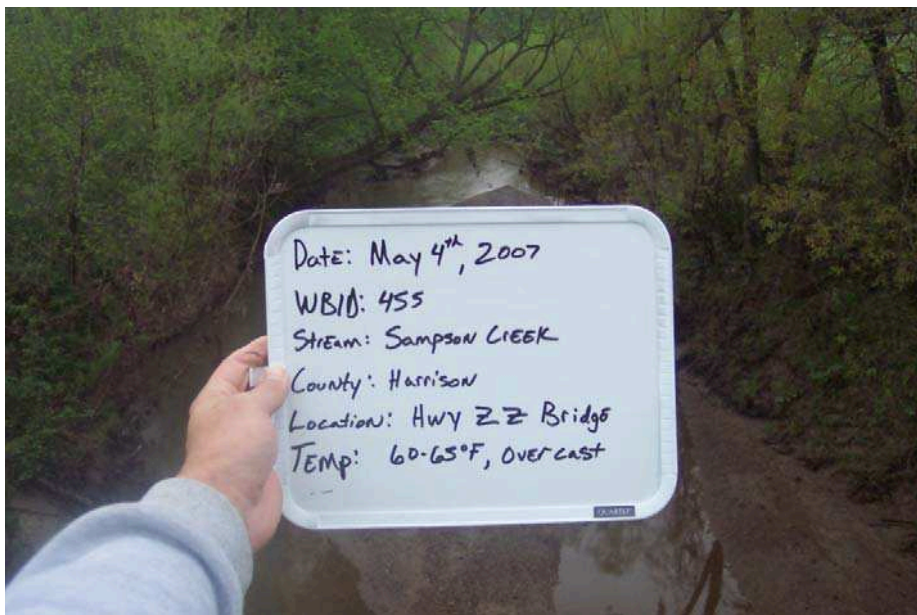 Date: May 4th, 2007
WBID: 455
Stream: Sampson Creek
County: Harrison
Location: Hwy ZZ Bridge
Temp: 60-65°F, Overcast
QUARTET